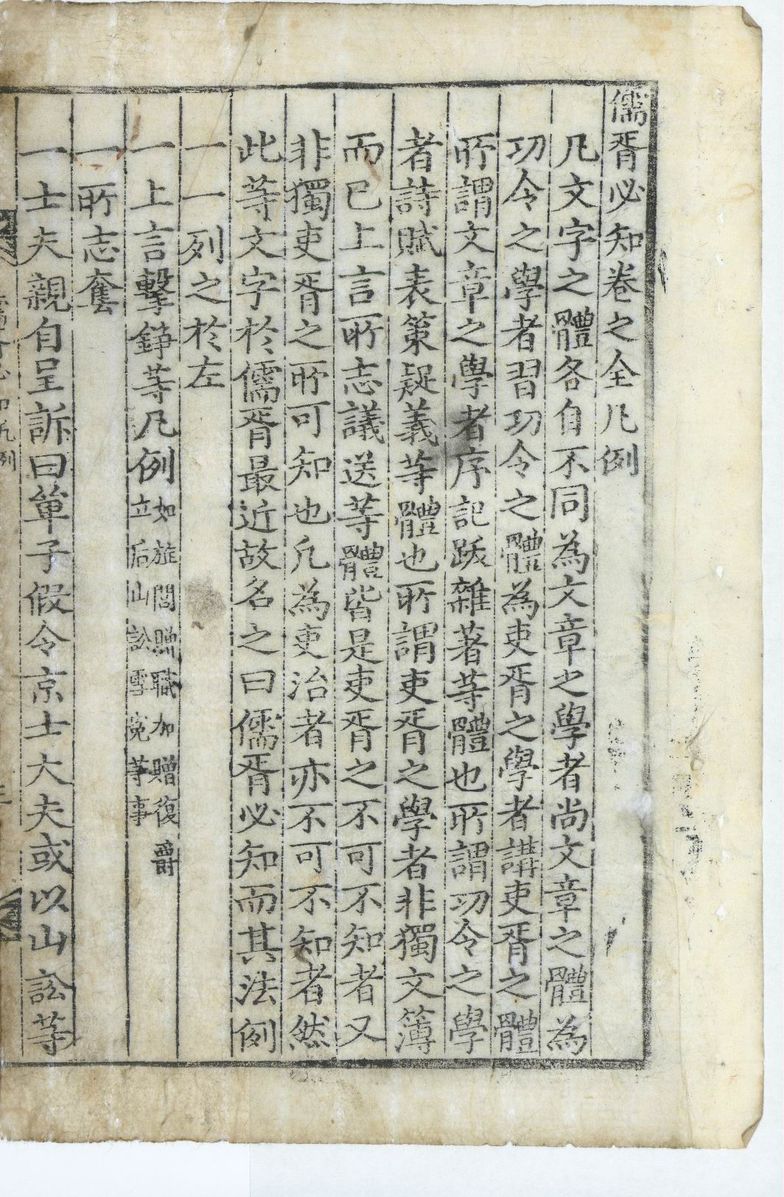 儒胥必知卷之全凡例
凡文字之體各自不同為文章之學者尚文章之體為
功令之學者習功令之體為吏胥之學者講吏胥之體
所謂文章之學者序記跋雜著等體也所謂功令之學
者詩賦表策疑義等體也所謂吏胥之學者非獨文簿
而已上言所志議送等體皆是吏胥之不可不知者又
非獨吏胥之所可知也凡為吏治者亦不可不知者然
此等文字於儒胥最近故名之曰儒胥必知而其法例
一一列之於左
一上言擊錚等凡例
如旌閭贈職加贈復爵
立后山訟雪冤等事
一所志奪
一士夫親自呈訴曰單子假令京士大夫或以山訟等